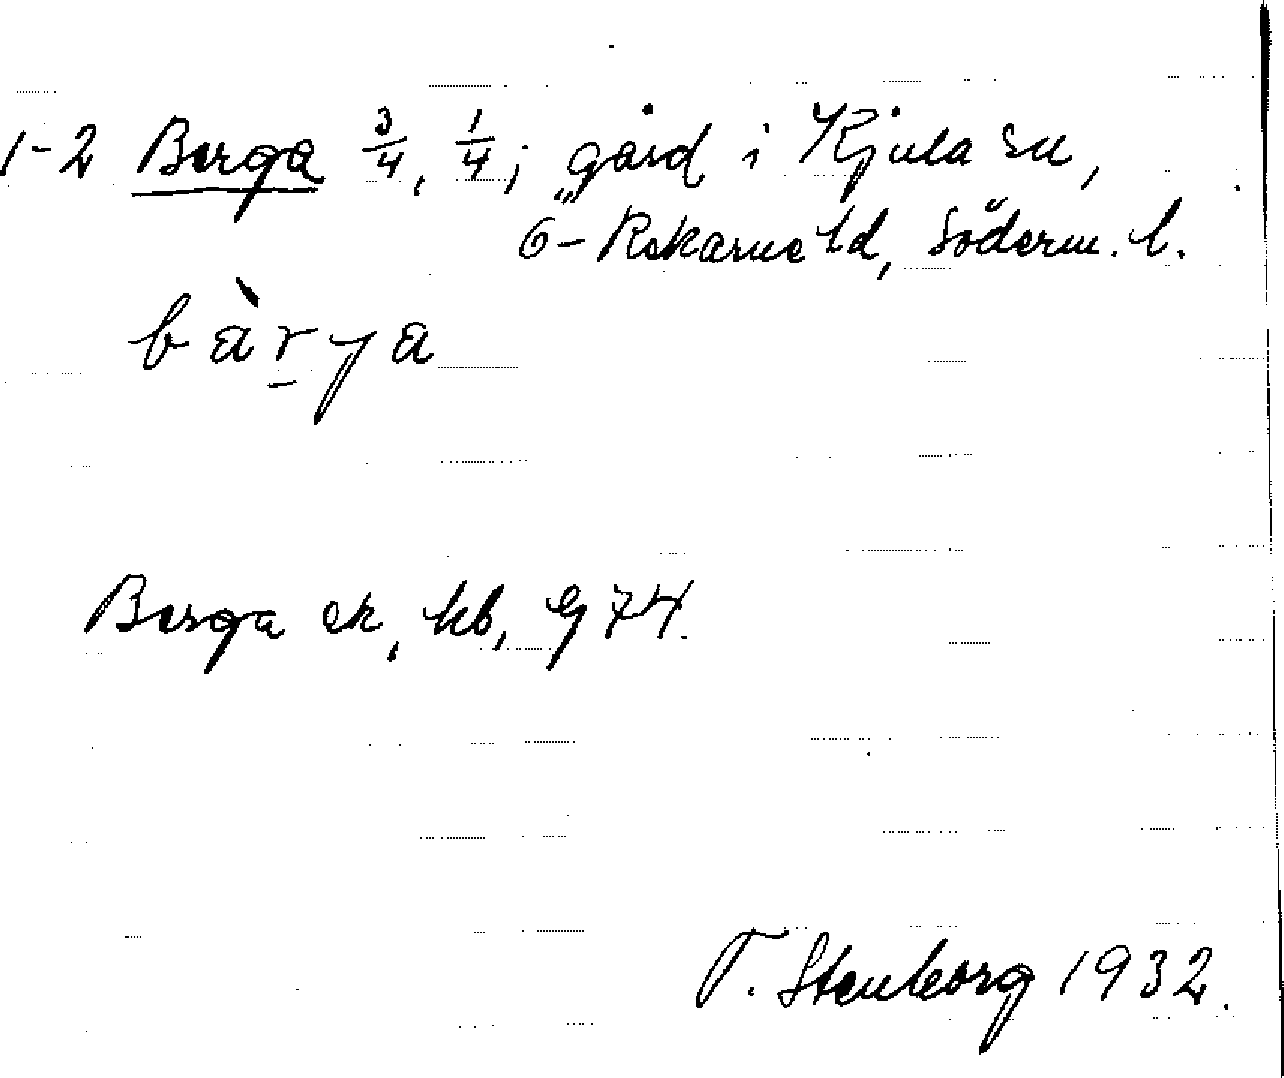 1-2 Berga 3/4, 1/4; gård i Kjula sn,
Ö-Rekarne hd, Söderm. l.
bàrya
Berga ek, kb, g 74.
T. Stenborg 1932.